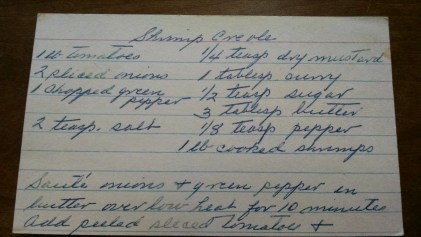 Shrimp Creole
1 lb tomatoes 1/4 teasp dry mustard
2 sliced onions 1 tablesp curry
1 chopped green pepper 1/2 teasp sugar
3 tablesp butter
2 teasp. salt 1/8 teasp pepper
1 lb cooked shrimps
Sauté onions + green pepper in
butter over low heat for 10 minutes
add peeled sliced tomatoes +